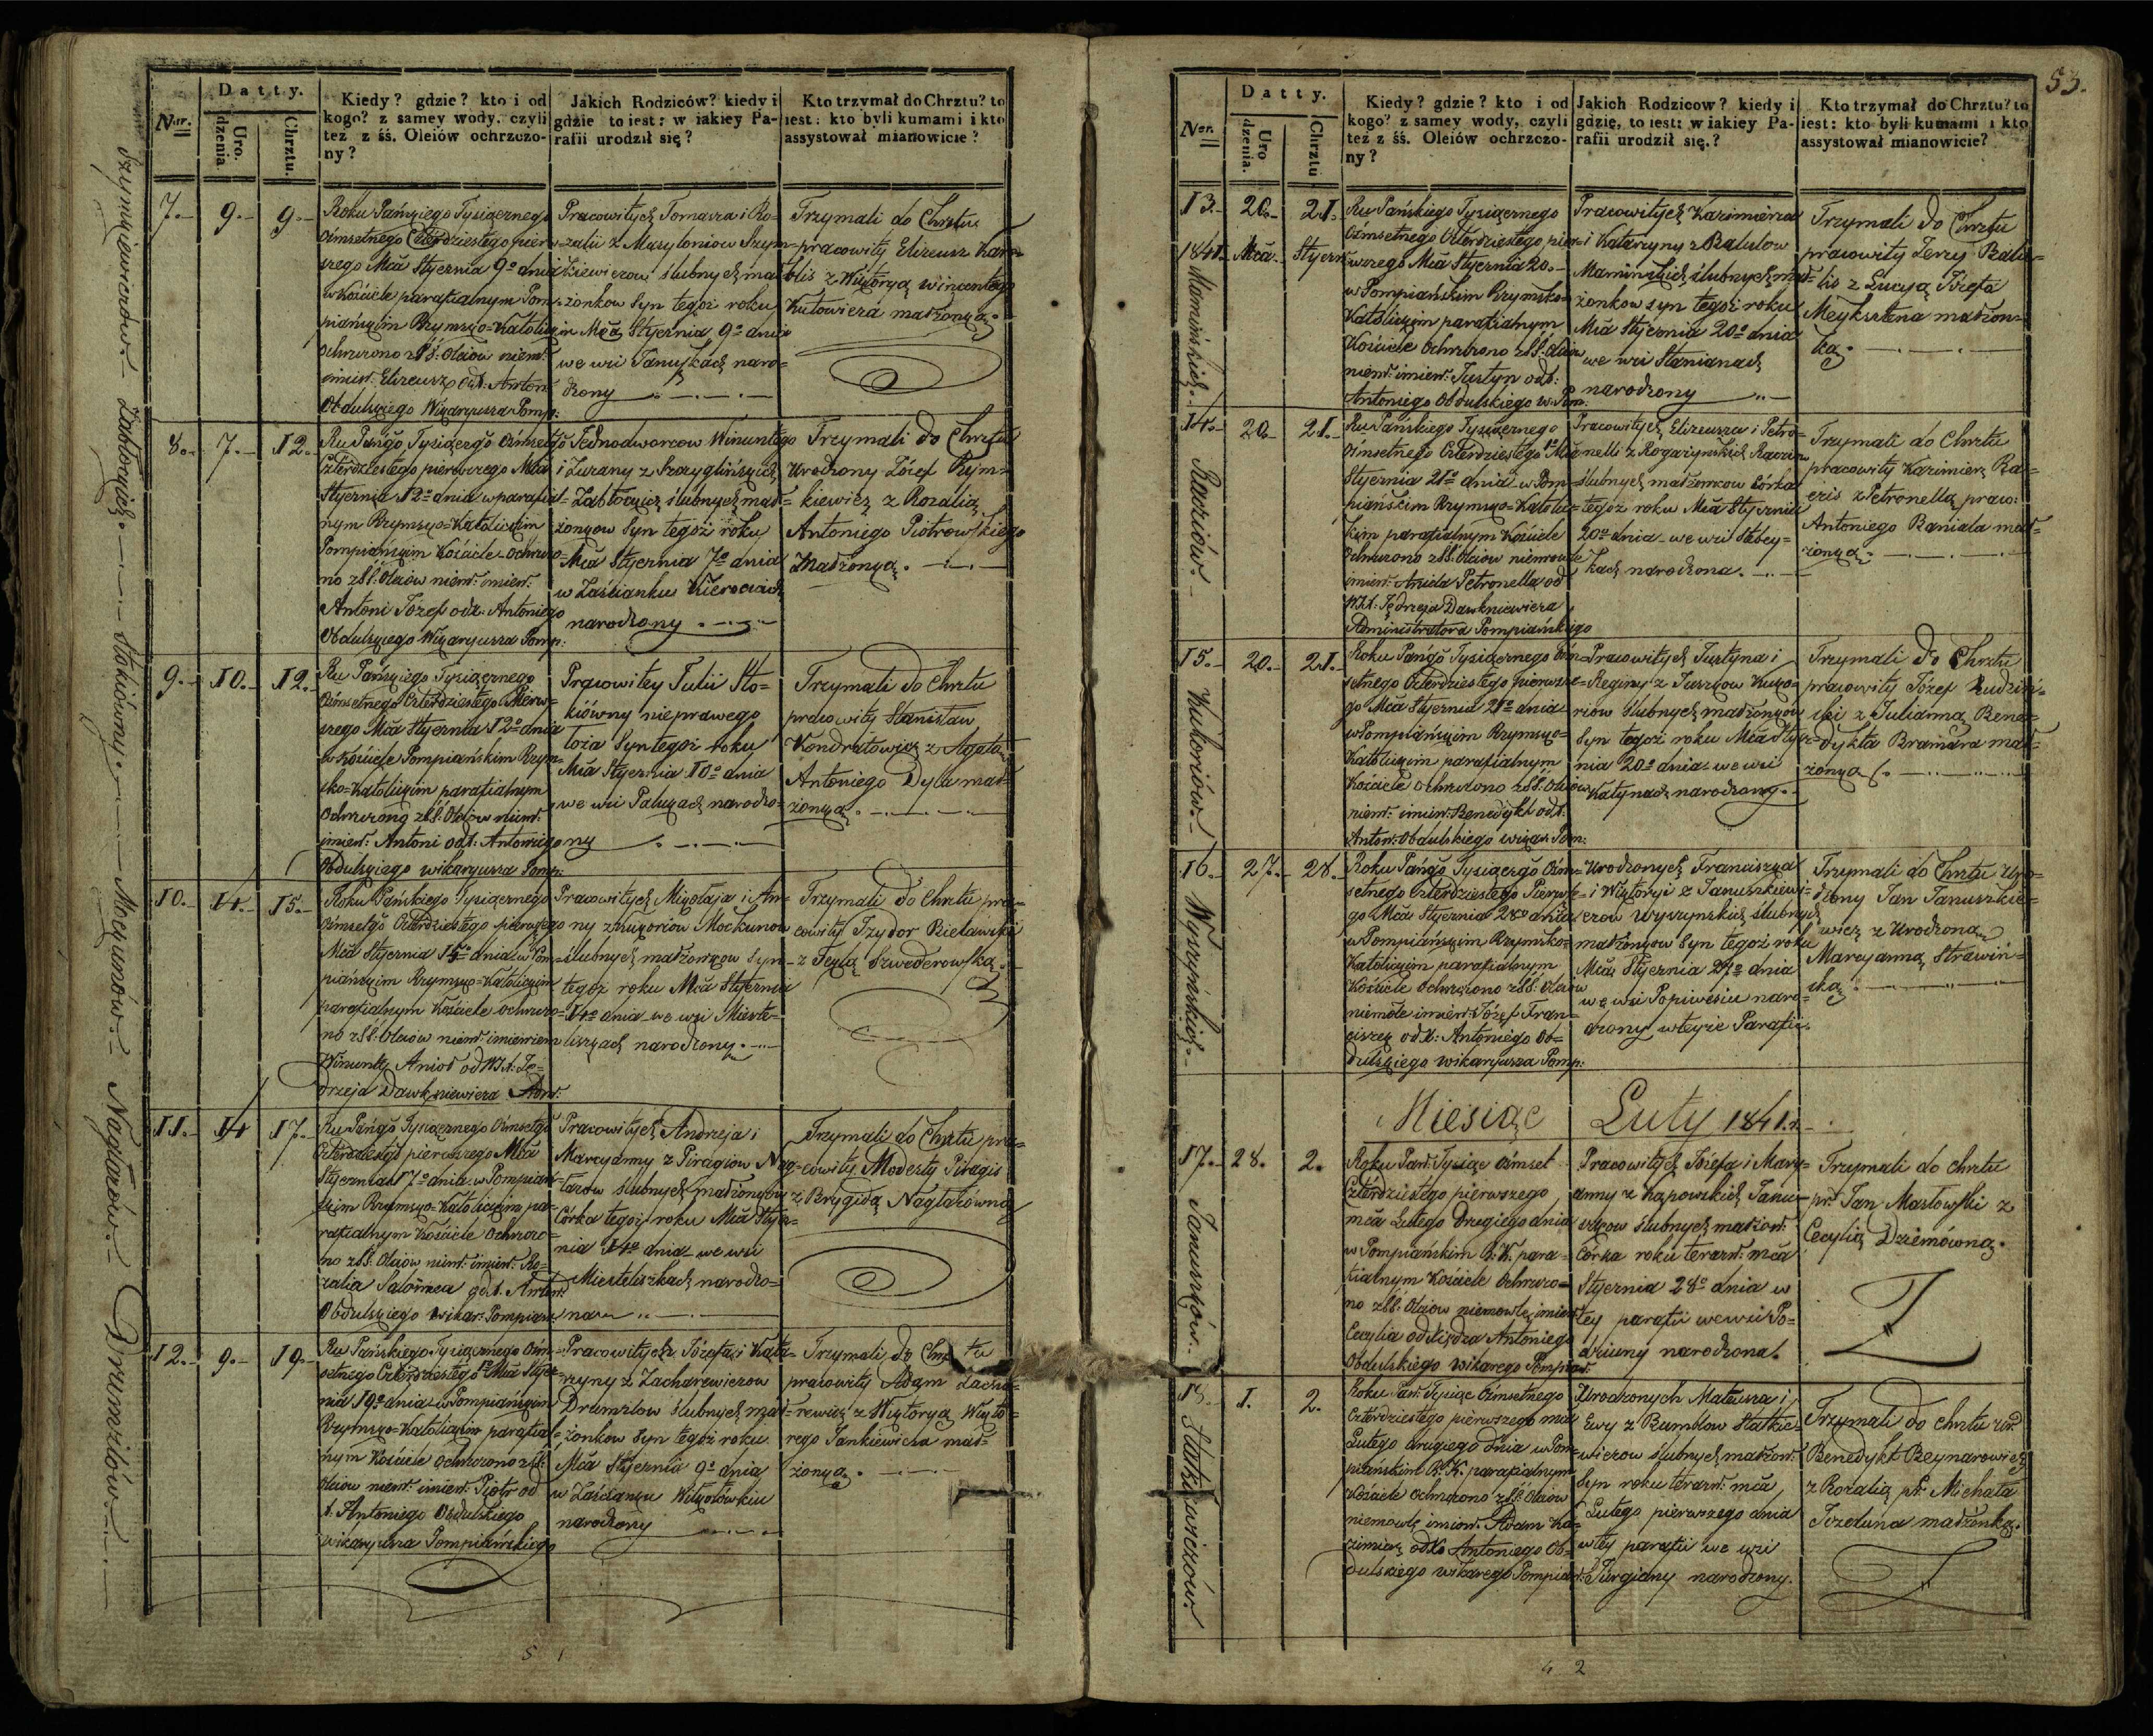 Datty.
Ner.
Uro.
dzenia.
Chrztu.
Kiedy? gdzie? kto i od
kogo? z samey wody, czyli
tez z śś. Oleiów ochrzczo-
ny?
Jakich Rodziców? kiedy i
gdzie to iest: w iakiey Pa-
rafii urodził się?
Kto trzymał do Chrztu? to
iest: kto byli kumami i kto
assystował mianowicie?
Szymkiewiczów.
7.
9.
9.
Roku Pańskiego Tysiącznego
Ośmsetnego Czterdziestego pierw-
szego Mca Stycznia 9o dnia
w Kościele parafialnym Pom-
piańskim Rzymsko-Katolickim
Ochrzczono z SS. Oleiów niem:
imień: Elizeusz od X. Anton:
Obdulskiego Wikaryusza Pomp:
Pracowitych Tomasza i Ro-
zalii z Masyloniow Szym-
kiewiczow ślubnych mał-
żonkow Syn tegoż roku
Mca Stycznia 9o dnia
we wsi Januszkach naro-
dzony
Trzymali do Chrztu
pracowity Elizeusz
z Wiktoryą Wincentego
Kutowicza małżonką.
Zabłockich.
8.
7.
12.
Ru Pańgo Tysiączgo Ośmsetgo
Czterdziestego pierwszego Mca
Stycznia 12o dnia w parafial-
nym Rzymsko-Katolickim
Pompiańskim Kościele ochrzczo-
no z SS. Oleiów niem: imień:
Antoni Józef od X. Antoniego
Obdulskiego Wikaryusza Pomp:
Jednodworcow Wincentego
i Zuzany z Szczyglińskich
Zabłockich ślubnych mał-
żonkow Syn tegoż roku
Mca Stycznia 7o dnia
w Zaścianku
narodzony
Trzymali do Chrztu
Urodzony Józef Rym-
kiewicz z Rozalią
Antoniego Piotrowskiego
Małżonką.
Stokiówny.
9.
10.
12.
Ru Pańskiego Tysiącznego
Ośmsetnego Czterdziestego Pierw-
szego Mca Stycznia 12o dnia
w Kościele Pompiańskim Rzym-
sko-Katolickim parafialnym
Ochrzczono z SS. Oleiów niem:
imień: Antoni od X. Antoniego
Obdulskiego wikaryusza Pomp:
Pracowitey Julii Sto-
kiówny nieprawego
łoża Syn tegoż roku
Mca Stycznia 10o dnia
we wsi Palukach narodzo-
ny
Trzymali do Chrztu
pracowity Stanisław
Kondratowicz z Agatą
Antoniego Dyla mał-
żonką.
Mockunów.
10.
14.
15.
Roku Pańskiego Tysiącznego
Ośmsetgo Czterdziestego pierwszego
Mca Stycznia 15o dnia w Pom-
piańskim Rzymsko-Katolickim
parafialnym Kościele ochrzczo-
no z SS. Oleiów niem: imieniem
Wincenty Anioł od WX. Ję-
drzeja Dawkniewicza Adm:
Pracowitych Mikołaja i An-
ny z Kukoriow Mockunow
ślubnych małżonkow Syn
tegoż roku Mca Stycznia
14o dnia we wsi Mieste-
liszkach narodzony.
Trzymali do Chrztu pra-
cowity Izydor Bielawski
z Teklą Szwederowską.
Nagłarów.
11.
14
17.
Ru Pańgo Tysiącznego Ośmsetgo
Czterdziestgo pierwszego Mca
Stycznia 17o dnia w Pompiań-
skim Rzymsko-Katolickim pa-
rafialnym Kościele Ochrzczo-
no z SS. Oleiów niem: imień: Ro-
zalia Salomea od X. Anton:
Obdulskiego wikar: Pompian:
Pracowitych Andrzeja i
Maryanny z Piragiow Nag-
łarow ślubnych małżonkow
Córka tegoż roku Mca Stycz-
nia 14o dnia we wsi
Miesteliszkach narodzo-
na
Trzymali do Chrztu pra-
cowity Modesty Piragis
z Brygidą Nagłarówną
Drumzlów.
12.
9.
19.
Ru Pańskiego Tysiącznego Ośm-
setnego Czterdziestego 1o Mca Stycz-
nia 19o dnia w Pompiańskim
Rzymsko-Katolickim parafial-
nym Kościele Ochrzczono z SS.
Oleiow niem: imień: Piotr od
X. Antoniego Obdulskiego
wikaryusza Pompiańskiego
Pracowitych Józefa i Kata-
rzyny z Zacharewiczow
Drumzlow ślubnych mał-
żonkow Syn tegoż roku
Mca Stycznia 9o dnia
w Zaścianku Witołówkiu
narodzony
Trzymali do Chrztu
pracowity Adam Zacha-
rewicz z Wiktoryą Wikto-
rego Jankiewicza mał-
żonką.
53.
Datty.
Ner.
Uro
dzenia.
Chrztu
Kiedy? gdzie? kto i od
kogo? z samey wody, czyli
tez z śś. Oleiów ochrzczo-
ny?
Jakich Rodzicow? kiedy i
gdzie, to iest: w iakiey Pa-
rafii urodził się.?
Kto trzymał do Chrztu? to
iest: kto byli kumami i kto
assystował mianowicie?
13.
1841.
Mamińskich.
20.
Mca.
21.
Styczn:
Ru Pańskiego Tysiącznego
Ośmsetnego Czterdziestego pier-
wszego Mca Stycznia 20.
w Pompiańskim Rzymsko-
Katolickim parafialnym
Kościele Ochrzczono z SS. Oleiów
niem: imień: Justyn od X.
Antoniego Obdulskiego w. Pom.
Pracowitych Kazimierza
i Katarzyny z Balulow
Mamińskich ślubnych mał-
żonkow syn tegoż roku
Mca Stycznia 20o dnia
we wsi Stanianach
narodzony
Trzymali do Chrztu
pracowity Jerzy Balu-
lis z Łucyą Józefa
Meyksztena małżon-
ką.
14.
Raciów.
20.
21.
Ru Pańskiego Tysiącznego
Ośmsetnego Czterdziestego 1o Mca
Stycznia 21o dnia w Pom-
piańskim Rzymsko-Katolic-
kim parafialnym Kościele
Ochrzczono z SS. Oleiow niemowle
imień: Aniela Petronella od
WX. Jędrzeja Dawkniewicza
Administratora Pompiańskiego
Pracowitych Elizeusza i Petro-
nelli z Rogażynskich
ślubnych małżonkow Córka
tegoż roku Mca Stycznia
20o dnia we wsi Stebey-
kach narodzona.
Trzymali do Chrztu
pracowity Kazimierz
z Petronellą praco:
Antoniego Baniala mał-
żonką.
15.
Kukoriów.
20.
21.
Roku Pańgo Tysiącznego Ośm-
setnego Czterdziestego pierwsze-
go Mca Stycznia 21o dnia
w Pompiańskim Rzymsko-
Katolickim parafialnym
Kościele ochrzczono z SS. Oleiow
niem: imień: Benedykt od X.
Anton: Obdulskiego wikar: Pom:
Pracowitych Justyna i
Reginy z Juszkow Kuko-
riow ślubnych małżonkow
Syn tegoż roku Mca Stycz-
nia 20o dnia we wsi
Katynach narodzony.
Trzymali do Chrztu
pracowity Józef Rudziń-
ski z Julianną Bene-
dykta Bramara mał-
żonką.
16.
Wyszyńskich.
27.
28.
Roku Pańgo Tysiączgo Ośm-
setnego Czterdziestego Pierwsze-
go Mca Stycznia 28o dnia
w Pompiańskim Rzymsko-
Katolickim parafialnym
Kościele Ochrzczono z SS. Oleiow
niemole imień: Józef Fran-
ciszek od X: Antoniego Ob-
dulskiego wikaryusza Pomp:
Urodzonych Franciszka
i Wiktoryi z Januszkiewi-
czow Wyszynskich ślubnych
małżonkow Syn tegoż roku
Mca Stycznia 27o dnia
we wsi Popiwesiu naro-
dzony w teyże Parafii.
Trzymali do Chrztu Uro-
dzony Jan Januszkie-
wicz z Urodzoną
Maryanną Strawiń-
ską.
Miesiąc Luty 1841 r.
17.
Januszków.
28.
2.
Roku Pań: Tysiąc Ośmset
Czterdziestego pierwszego
mca Lutego Drugiego dnia
w Pompiańskim R. K. para-
fialnym Kościele Ochrzczo-
no z SS. Oleiow niemowlę imień:
Cecylia od Xiędza Antoniego
Obdulskiego Wikarego Pompiań:
Pracowitych Józefa i Mary-
anny z Kapowskich Janu-
szkow ślubnych małżon:
Córka roku terazn: mca
Stycznia 28o dnia w
tey parafii we wsi Po-
dziuny narodzona.
Trzymali do chrztu
pr: Jan Masłowski z
Cecylią Dziemówną.
18.
Statkiewiczów.
1.
2.
Roku Pań: Tysiąc Ośmsetnego
Czterdziestego pierwszego mca
Lutego drugiego dnia w Pom-
piańskim R. K. parafialnym
Kościele Ochrzczono z SS. Oleiow
niemowlę imion: Adam Ka-
zimierz od X. Antoniego Ob-
dulskiego wikarego Pompiań:
Urodzonych Mateusza i
Ewy z Rumblow Statkie-
wiczow ślubnych małżon:
Syn roku terazn: mca
Lutego pierwszego dnia
w tey parafii we wsi
Jurgiany narodzony.
Trzymali do chrztu Ur.
Benedykt Reynarowicz
z Rozalią pr: Michała
małżonką.